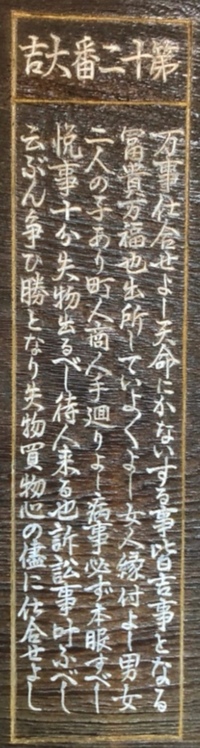 第十二番大吉
万事仕合せよし天命にかないする事皆吉事となる
冨貴万福也出所していよ〱よし女人縁付よし男女
二人の子あり町人商人手廻りよし病事必ず本服すべし
悦事十分失物出るべし待人来る也訴訟事叶ふべし
云ぶん争ひ勝となり失物買物心の儘に仕合せよし